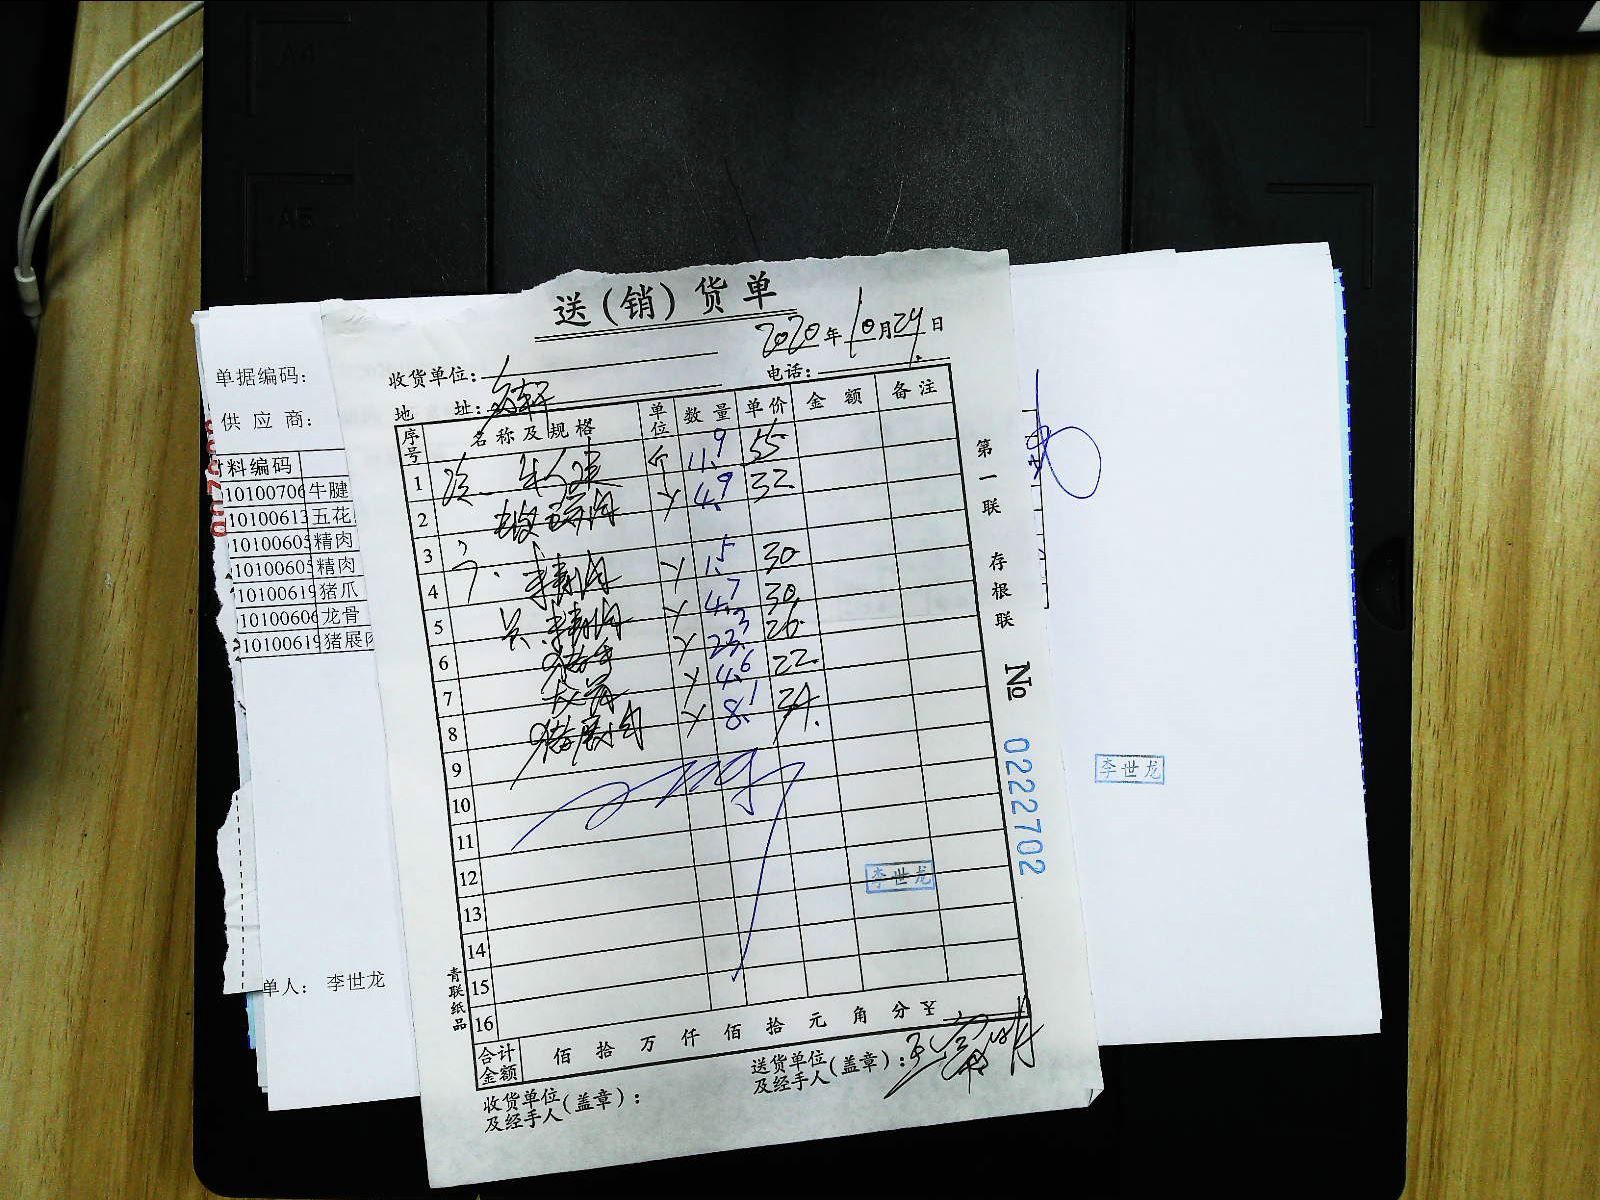 A4
A5
送(销)货单
2020年10月24日
收货单位:
电话:
地 址:
单据编码:
供 应 商:
料编码
10100706 牛腱
10100613 五花
10100605 精肉
10100605 精肉
10100619 猪爪
10100606 龙骨
10100619 猪展肉
单人: 李世龙
序号 名称及规格 单位 数量 单价 金额 备注
1 11.9 55
2 4.9 32
3
4 精肉 1.5 30
5 精肉 4.7 30
6 23.3 26
7 龙骨 4.6 22
8 猪展肉 8.1 34
9
10
11
12
13
14
15
16
合计金额 佰 拾 万 仟 佰 拾 元 角 分 ¥
收货单位及经手人(盖章):
送货单位及经手人(盖章):
第一联 存根联
№ 0222702
青联纸品
李世龙
李世龙